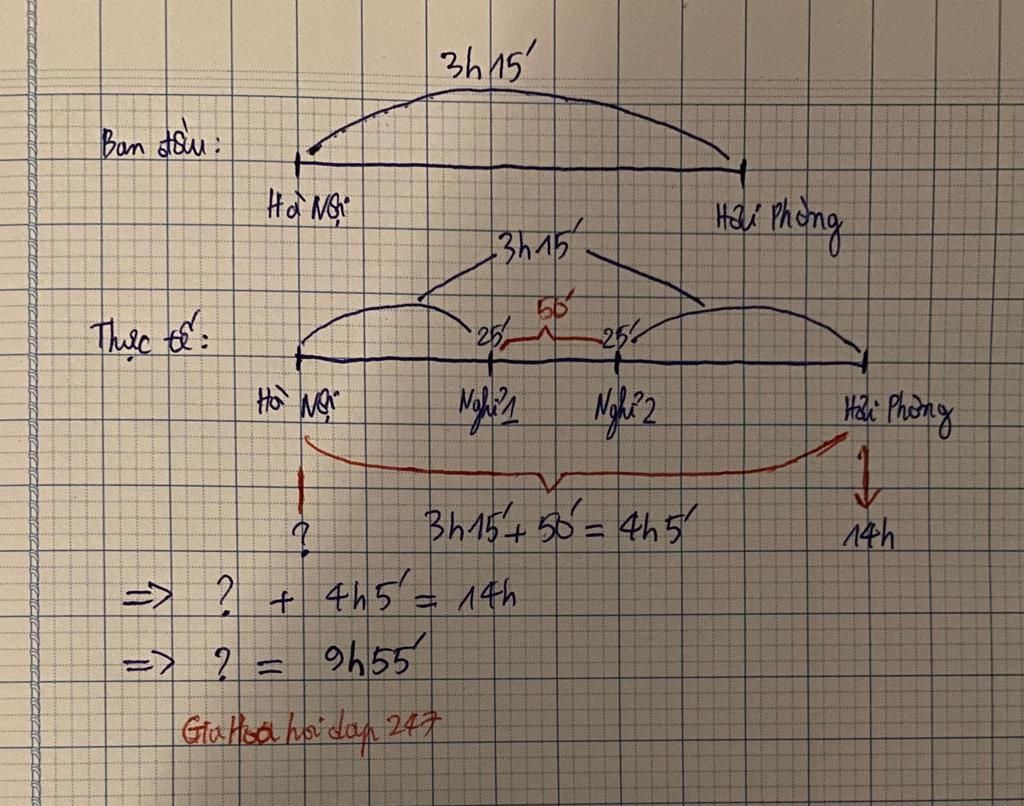 3h15'
Ban đầu:
Hà Nội
Hải Phòng
3h15'
50'
Thực tế:
25'
25'
Hà Nội
Nghỉ 1
Nghỉ 2
Hải Phòng
?
3h15' + 50' = 4h5'
14h
=> ? + 4h5' = 14h
=> ? = 9h55'
GiaHoa hoidap 247